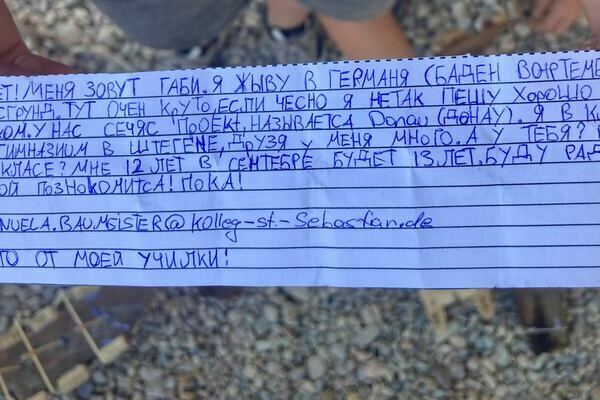 ЕТ! МЕНЯ ЗОВУТ ГАБИ. Я ЖЫВУ В ГЕРМАНЯ (БАДЕН ВЮРТЕМБЕ
СГРУНД. ТУТ ОЧЕН КРУТО, ЕСЛИ ЧЕСНО Я НЕТАК ПЕШУ ХОРОШО
КОМ. У НАС СЕЧЯС ПРОЕКТ, НАЗЫВАЕТСА Donau (ДОНАУ). Я В К
ГИМНАЗИУМ В ШТЕГЕНЕ, ДРУЗЯ У МЕНЯ МНОГО. А У ТЕБЯ?
КЛАСЕ? МНЕ 12 ЛЕТ В СЕНТЕБРЕ БУДЕТ 13 ЛЕТ. БУДУ РАД
ОЙ ПОЗНОКОМИТСА! ПОКА!
NUELA.BAUMEISTER@KOlleg-st.-Sebastian.de
ТО ОТ МОЕЙ УЧИЛКИ!